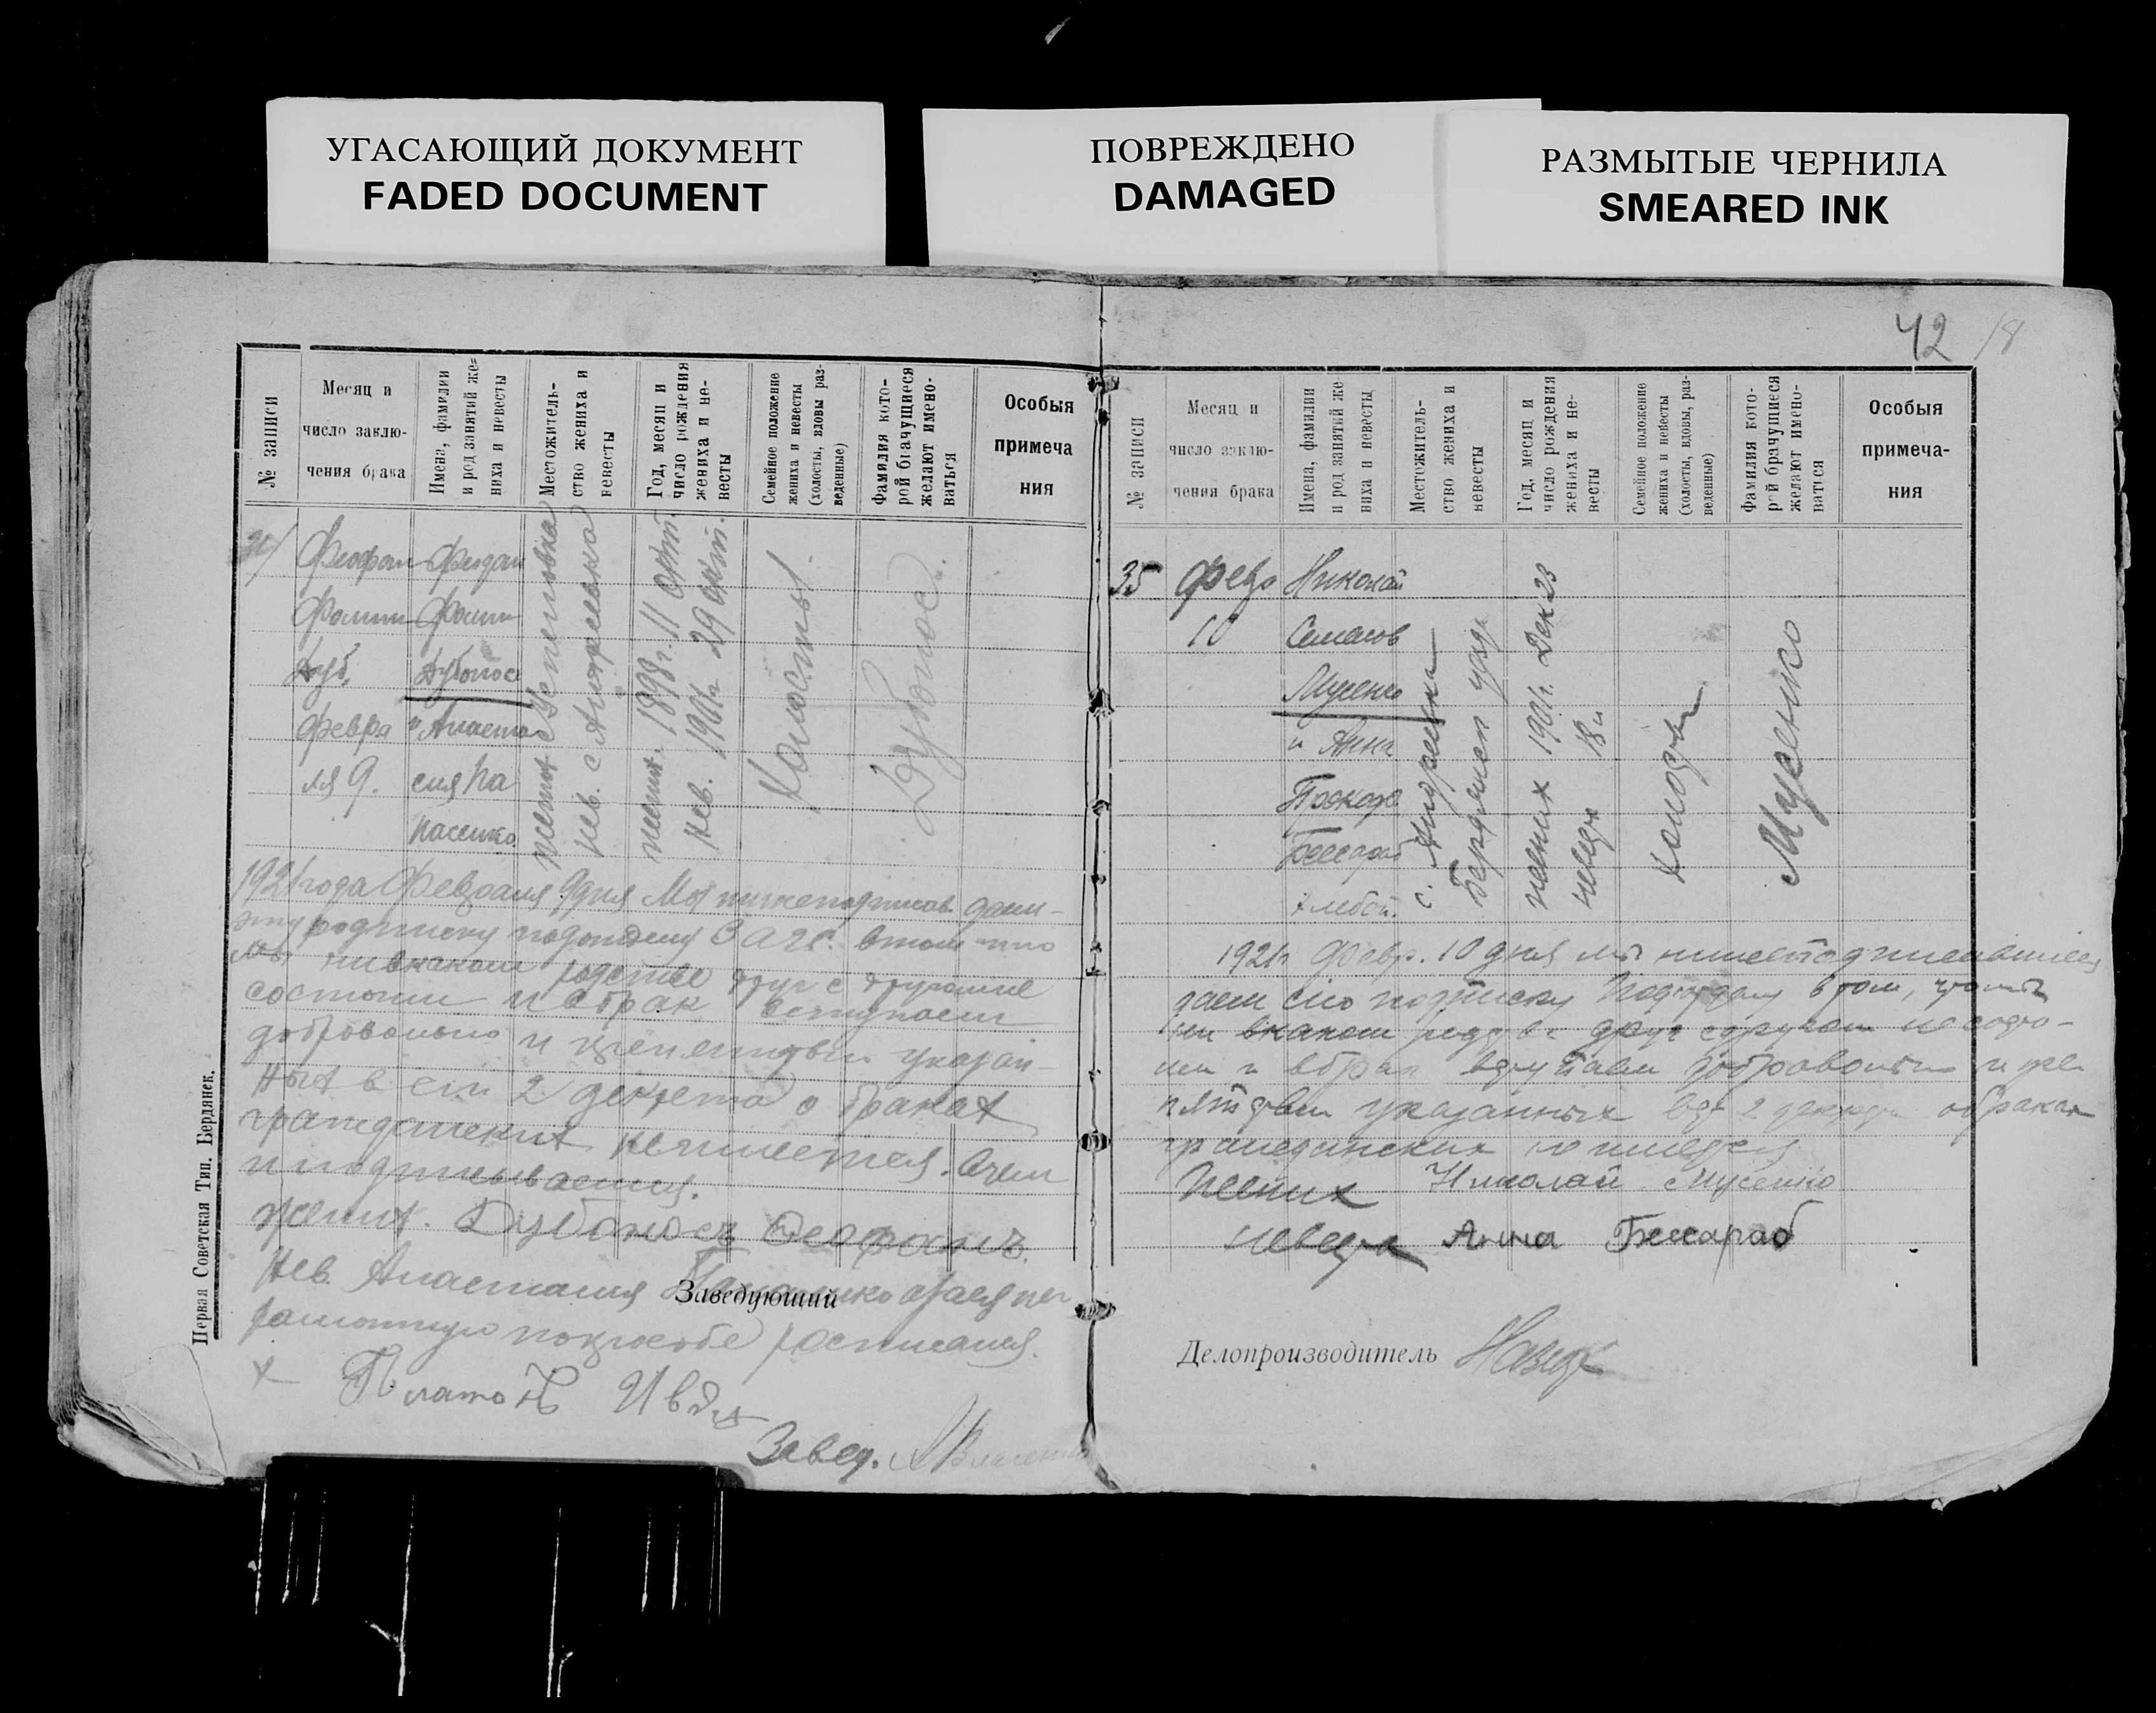 УГАСАЮЩИЙ ДОКУМЕНТ
FADED DOCUMENT
ПОВРЕЖДЕНО
DAMAGED
РАЗМЫТЫЕ ЧЕРНИЛА
SMEARED INK
№ записи
Месяц и
число заклю-
чения брака
Имена, фамилии
и род занятий же-
ниха и невесты
Местожитель-
ство жениха и
невесты
Год, месяц и
число рождения
жениха и не-
весты
Семейное положение
жениха и невесты
(холосты, вдовы раз-
веденные)
Фамилия кото-
рой брачущиеся
желают имено-
ваться
Особыя
примеча
ния
Феофан
Дуб.
Дубонос
февра
и Анаста
ля 9.
сия Па
жених
нев. с
жених. 1898г. 11 окт.
нев. 1901г 29 окт.
Холосты.
Дубонос.
1921 года Февраля 9 дня Мы нижеподписав. даем
эту подписку подотделу Загс. в том что
мы ни в каком родстве друг с другом не
состоим и в брак вступаем
добровольно и препятствий указан-
ных в ст 2 декрета о браках
гражданских не имеется. в чем
и подписываемся.
жених. Дубонос Феофанъ
Нев. Анастасия
Заведующий
расписался.
Платон
Завед.
Первая Советская Тип. Бердянск.
42
18
№ записи
Месяц и
число заклю-
чения брака
Имена, фамилии
и род занятий же
ниха и невесты
Местожитель-
ство жениха и
невесты
Год, месяц и
число рождения
жениха и не-
весты
Семейное положение
жениха и невесты
(холосты, вдовы, раз-
веденные)
Фамилия кото-
рой брачущиеся
желают имено-
ваться
Особыя
примеча-
ния
35
февр
Николай
10
Семенов
Мусенко
и Анна
Прокоф.
Бессараб
хлебоп.
с. Андреевка
Бердянск уезд
жених 1901г. Дек 23
невеста
холосты
Мусенко
1921г Февр. 10 дня мы нижеподписавшиеся
даем сию подписку Подотделу в том, что мы
ни в каком родстве друг с другом не состо-
им и в брак вступаем добровольно и пре
пятствий указанных в ст 2 декрета о браках
гражданских не имеется
Жених Николай Мусенко
невеста Анна Бессараб
Делопроизводитель